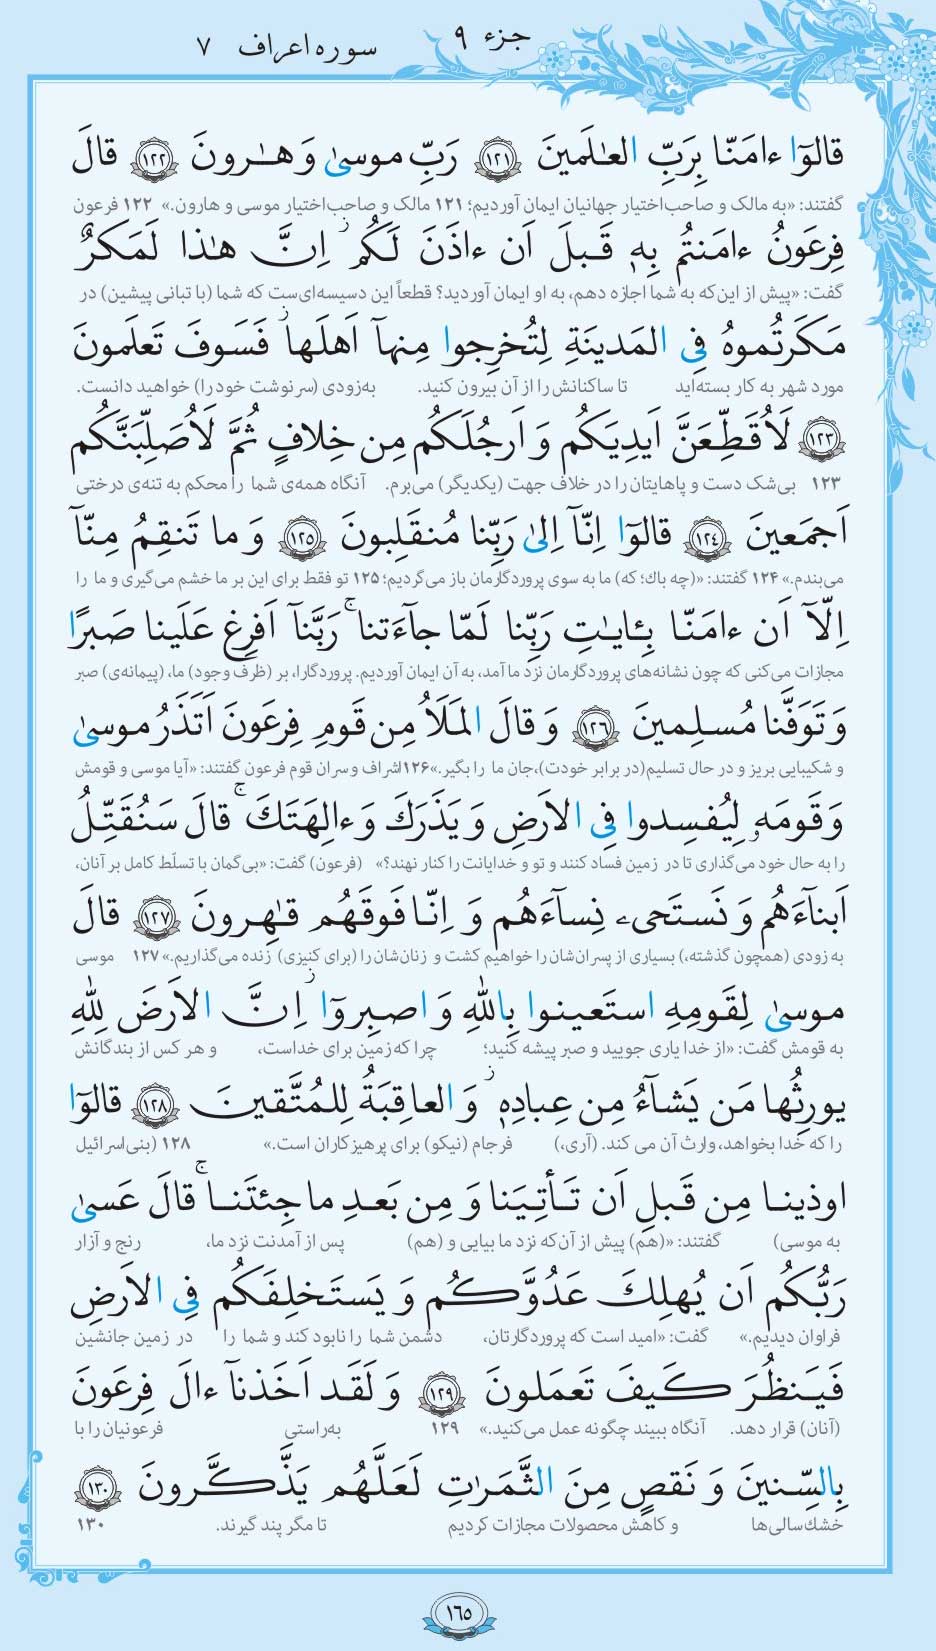 جزء ٩
سوره اعراف ٧
قالوٓا ءامَنّا بِرَبِّ العٰلَمينَ ﴿١٢١﴾ رَبِّ موسىٰ وَ هٰرونَ ﴿١٢٢﴾ قالَ
گفتند: «به مالک و صاحب‌اختیار جهانیان ایمان آوردیم؛ ۱۲۱ مالک و صاحب‌اختیار موسی و هارون.» ۱۲۲ فرعون
فِرعَونُ ءامَنتُم بِهٖ قَبلَ اَن ءاذَنَ لَكُم ز اِنَّ هٰذا لَمَكرٌ
گفت: «پیش از این‌که به شما اجازه دهم، به او ایمان آوردید؟ قطعاً این دسیسه‌ای‌ست که شما (با تبانی پیشین) در
مَكَرتُموهُ فِى المَدينَةِ لِتُخرِجوا مِنهآ اَهلَها ز فَسَوفَ تَعلَمونَ
مورد شهر به کار بسته‌اید تا ساکنانش را از آن بیرون کنید. به‌زودی (سرنوشت خود را) خواهید دانست.
﴿١٢٣﴾ لَاُقَطِّعَنَّ اَيدِيَكُم وَ اَرجُلَكُم مِن خِلافٍ ثُمَّ لَاُصَلِّبَنَّكُم
۱۲۳ بی‌شک دست و پاهایتان را در خلاف جهت (یکدیگر) می‌برم. آنگاه همه‌ی شما را محکم به تنه‌ی درختی
اَجمَعينَ ﴿١٢٤﴾ قالوٓا اِنّآ اِلىٰ رَبِّنا مُنقَلِبونَ ﴿١٢٥﴾ وَ ما تَنقِمُ مِنّآ
می‌بندم.» ۱۲۴ گفتند: «(چه باك؛ که) ما به سوی پروردگارمان باز می‌گردیم؛ ۱۲۵ تو فقط برای این بر ما خشم می‌گیری و ما را
اِلّآ اَن ءامَنّا بِـٔايٰتِ رَبِّنا لَمّا جآءَتنا ج رَبَّنآ اَفرِغ عَلَينا صَبرًا
مجازات می‌کنی که چون نشانه‌های پروردگارمان نزد ما آمد، به آن ایمان آوردیم. پروردگارا، بر (ظرف وجود) ما، (پیمانه‌ی) صبر
وَ تَوَفَّنا مُسلِمينَ ﴿١٢٦﴾ وَ قالَ المَلَاُ مِن قَومِ فِرعَونَ اَتَذَرُ موسىٰ
و شکیبایی بریز و در حال تسلیم(در برابر خودت)،جان ما را بگیر.»۱۲۶اشراف و سران قوم فرعون گفتند: «آیا موسی و قومش
وَ قَومَهٗ لِيُفسِدوا فِى الاَرضِ وَ يَذَرَكَ وَ ءالِهَتَكَ ج قالَ سَنُقَتِّلُ
را به حال خود می‌گذاری تا در زمین فساد کنند و تو و خدایانت را کنار نهند؟» (فرعون) گفت: «بی‌گمان با تسلّط کامل بر آنان،
اَبنآءَهُم وَ نَستَحيۦ نِسآءَهُم وَ اِنّا فَوقَهُم قٰهِرونَ ﴿١٢٧﴾ قالَ
به زودی (همچون گذشته،) بسیاری از پسران‌شان را خواهیم کشت و زنان‌شان را (برای کنیزی) زنده می‌گذاریم.» ۱۲۷ موسی
موسىٰ لِقَومِهِ استَعينوا بِاللهِ وَ اصبِروٓا ز اِنَّ الاَرضَ لِلّٰهِ
به قومش گفت: «از خدا یاری جویید و صبر پیشه کنید؛ چرا که زمین برای خداست، و هر کس از بندگانش
يورِثُها مَن يَشآءُ مِن عِبادِهٖ ز وَ العاقِبَةُ لِلمُتَّقينَ ﴿١٢٨﴾ قالوٓا
را که خدا بخواهد، وارث آن می کند. (آری،) فرجام (نیکو) برای پرهیزکاران است.» ۱۲۸ (بنی‌اسرائیل
اوذينا مِن قَبلِ اَن تَأتِيَنا وَ مِن بَعدِ ما جِئتَنا ج قالَ عَسىٰ
به موسی) گفتند: «(هم) پیش از آن‌که نزد ما بیایی و (هم) پس از آمدنت نزد ما، رنج و آزار
رَبُّكُم اَن يُهلِكَ عَدُوَّكُم وَ يَستَخلِفَكُم فِى الاَرضِ
فراوان دیدیم.» گفت: «امید است که پروردگارتان، دشمن شما را نابود کند و شما را در زمین جانشین
فَيَنظُرَ كَيفَ تَعمَلونَ ﴿١٢٩﴾ وَ لَقَد اَخَذنآ ءالَ فِرعَونَ
(آنان) قرار دهد. آنگاه ببیند چگونه عمل می‌کنید.» ۱۲۹ به‌راستی فرعونیان را با
بِالسِّنينَ وَ نَقصٍ مِنَ الثَّمَرٰتِ لَعَلَّهُم يَذَّكَّرونَ ﴿١٣٠﴾
خشك‌سالی‌ها و کاهش محصولات مجازات کردیم تا مگر پند گیرند. ۱۳۰
١٦٥